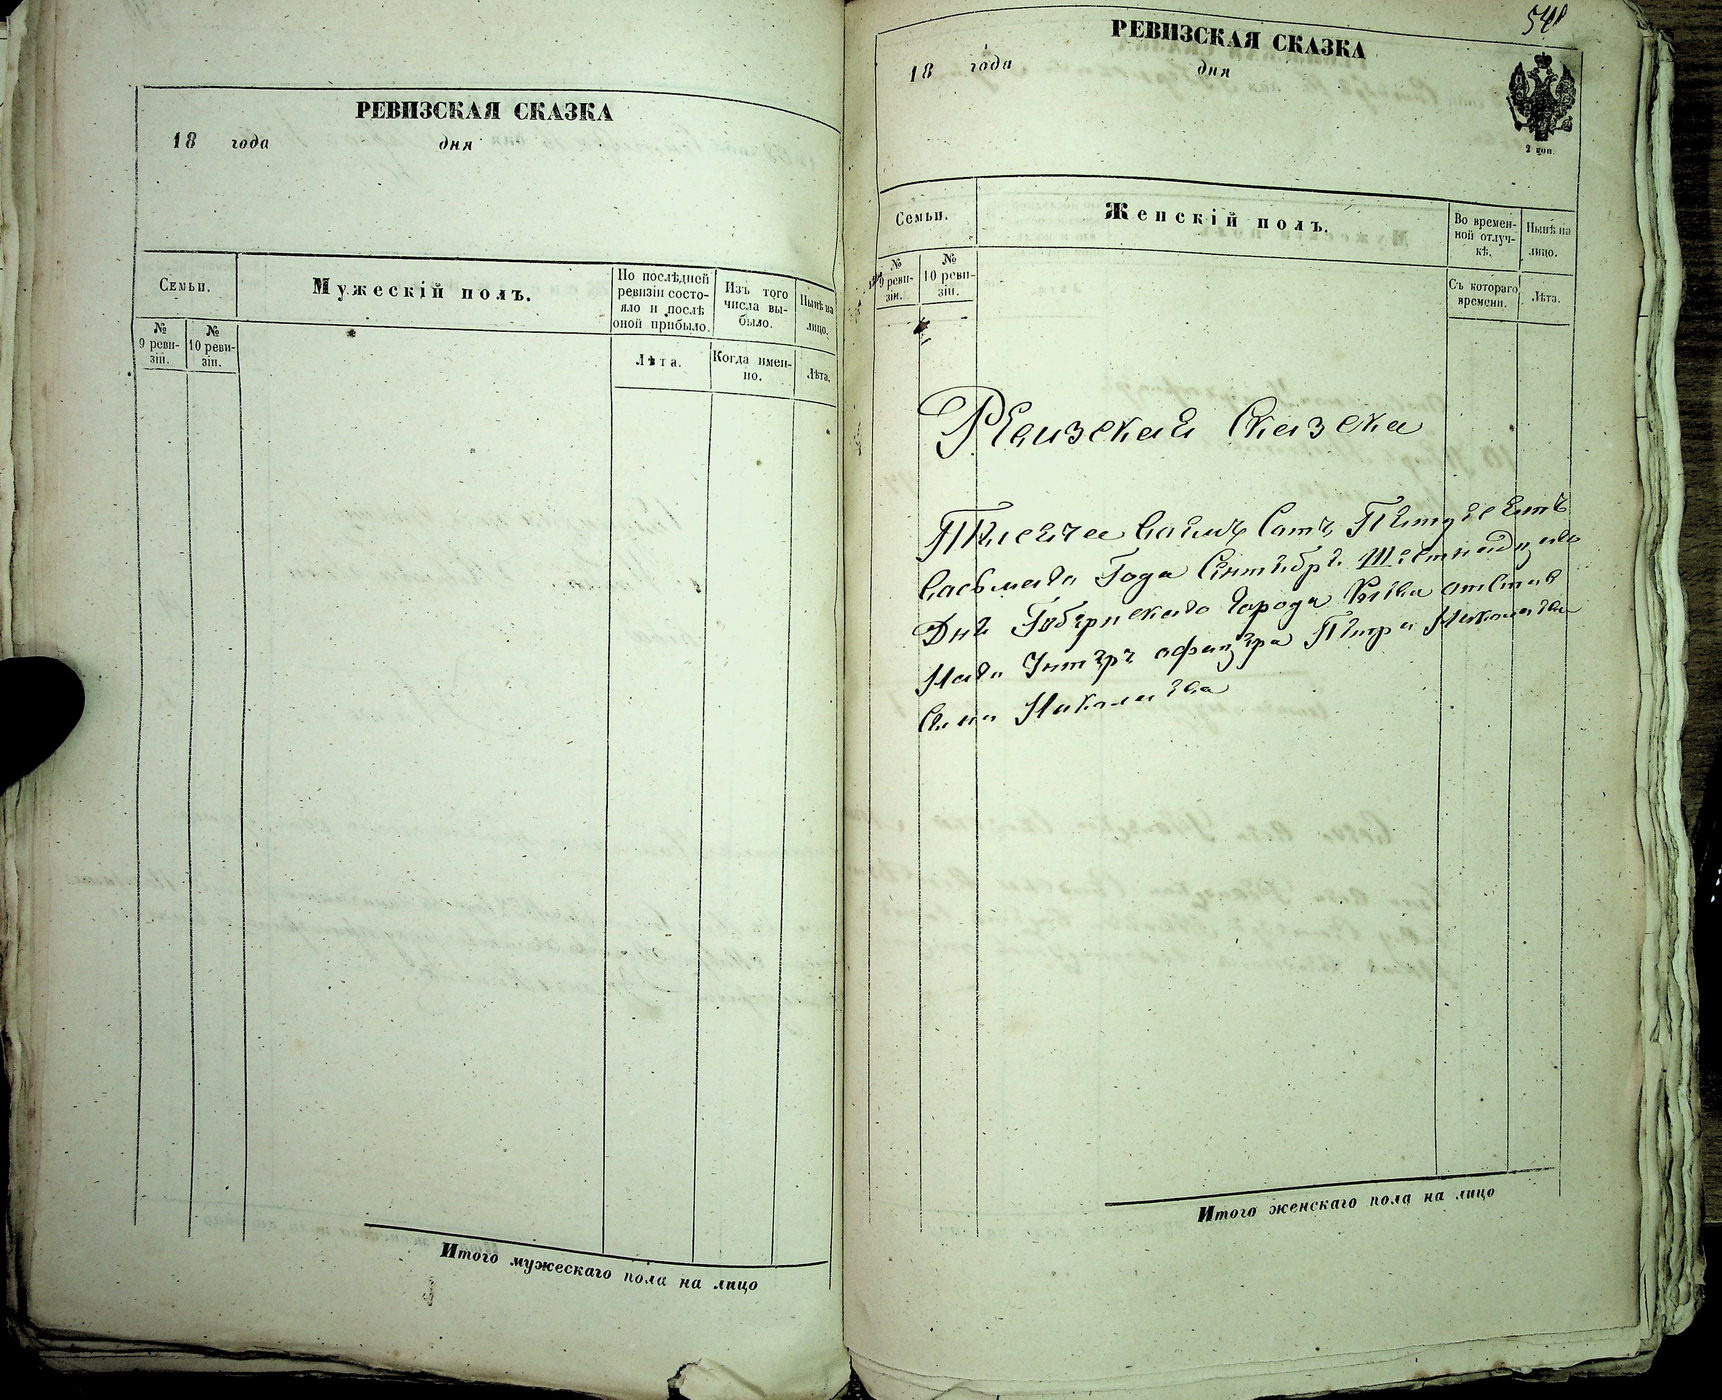 РЕВИЗСКАЯ СКАЗКА
18 года дня
Семьи.
Мужескій полъ.
По послѣдней
ревизіи состо-
яло и послѣ
оной прибыло.
Изъ того
числа вы-
было.
Нынѣ на
лицо.
№
9 реви-
зіи.
№
10 реви-
зіи.
Лѣта.
Когда имен-
но.
Лѣта.
Итого мужескаго пола на лицо
РЕВИЗСКАЯ СКАЗКА
18 года дня
2 коп.
Семьи.
Женскій полъ.
Во времен-
ной отлуч-
кѣ.
Нынѣ на
лицо.
№
9 реви-
зіи.
№
10 реви-
зіи.
Съ котораго
времени.
Лѣта.
Ревизская Сказка
Тысеча Васимъ Сотъ Петдесетъ
Васьмаго Года Сентебре Шестнадцаго
Дне Губернскаго Города Киева отстав
наго Унтеръ офицера Петра Николаева
Сына Николаева
Итого женскаго пола на лицо